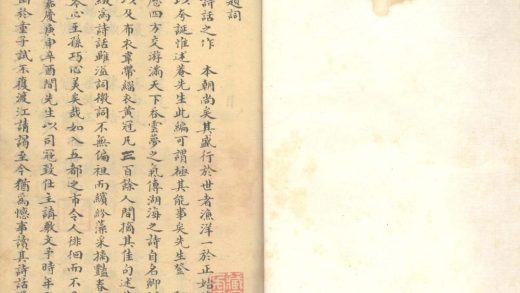 題詞
詩話之作 本朝尚矣其盛行於世者漁洋一於正始
以夸誕惟述菴先生此編可謂極其能事矣先生登
應四方交游滿天下吞雲夢之氣傳湖海之詩自名卿
以及布衣韋帶緇衣黃冠凡三百餘人間摘其佳句述
綴為詩話雖溢詞微詞不無偏袒而繽紛藻采摛豔春
冬心王孫巧心美矣哉如入五都之市令人徘徊而不
嘉慶庚申辛酉間先生以司寇致仕主講敷文予時年
困於童子試不獲渡江請謁至今猶為憾事讀其詩話